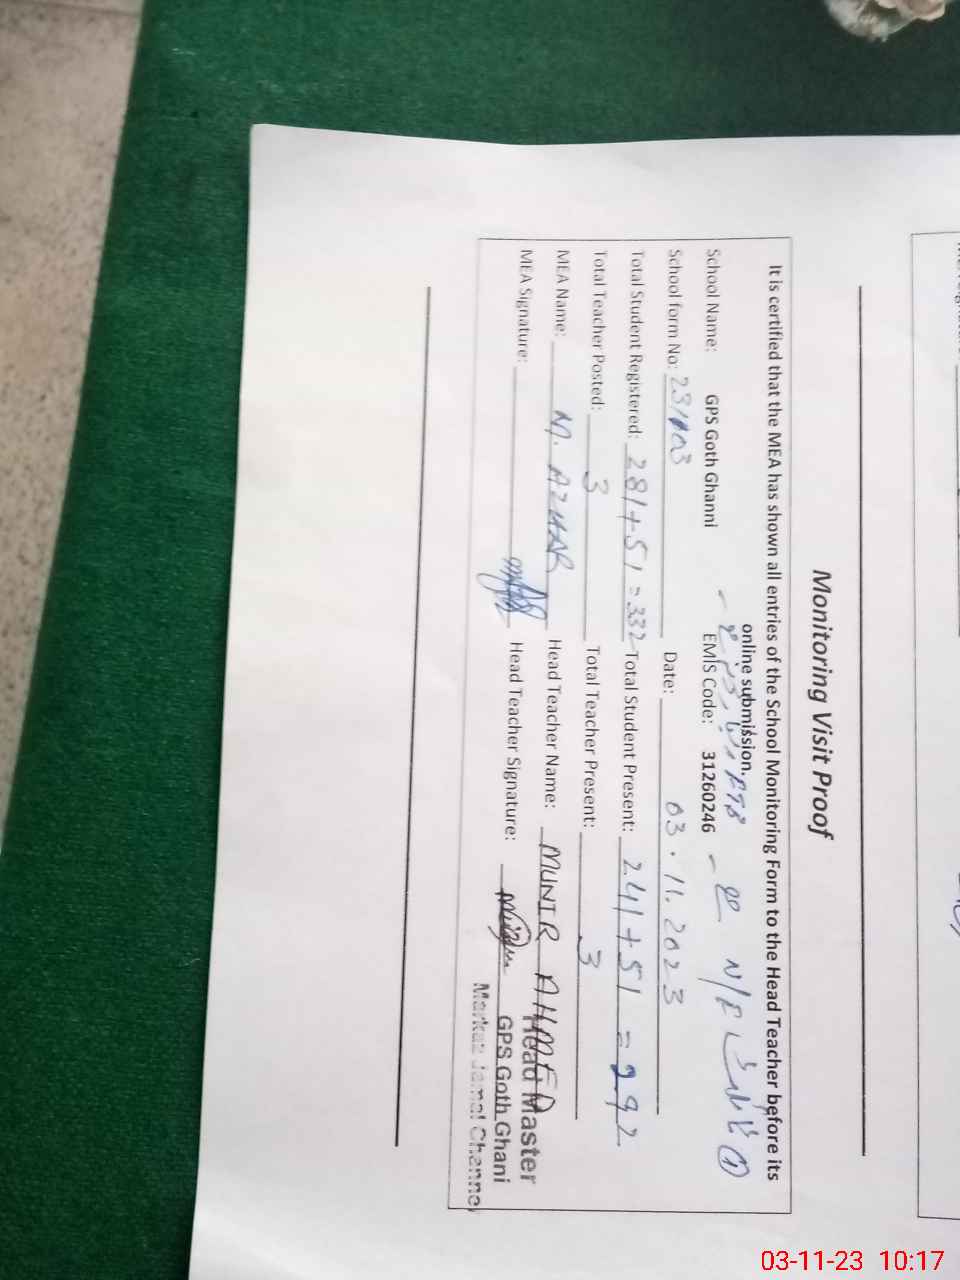 Monitoring Visit Proof
It is certified that the MEA has shown all entries of the School Monitoring Form to the Head Teacher before its
online submission.
N/F ①
School Name: GPS Goth Ghanni EMIS Code: 31260246
School form No: Date: 03.11.2023
Total Student Registered: 281+51=332 Total Student Present: 241+51=292
Total Teacher Posted: 3 Total Teacher Present: 3
MEA Name: M. AZHAR Head Teacher Name: MUNIR AHMED
MEA Signature: Head Teacher Signature:
Head Master
GPS Goth Ghani
Markaz Jamal Channer
03-11-23 10:17